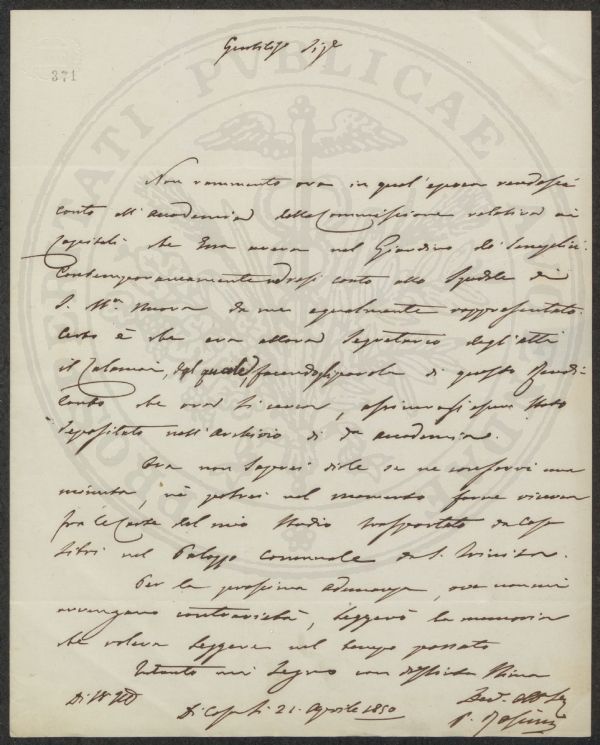 371
PROSPERITATI PUBLICAE
Non rammento ora in qual'epoca rendessi
conto all'Accademia della Commissione relativa ai
Capitoli che Essa aveva nel Giardino de' Semplici.
Contemporaneamente conto allo Spedale di
S. Ma. Nuova da me egualmente rappresentato.
Certo è che era allora Segretario degli atti
il Calamai, dal quale, facendogli parola di questo Rendi-
conto che ora si cerca, essere stato
depositato nell'archivio di da. Accademia.
Ora non saprei dirle se ne conservi una
minuta, nè potrei nel momento farne ricerca
fra le carte del mio studio trasportato da Casa
nel Palazzo Comunale da S. Trinita.
Per la prossima adunanza, ove non mi
avvengano contrarietà, leggerò la memoria
che voleva leggere nel tempo passato
Intanto mi segno con distinta stima
Di Casa li 21. Aprile 1850